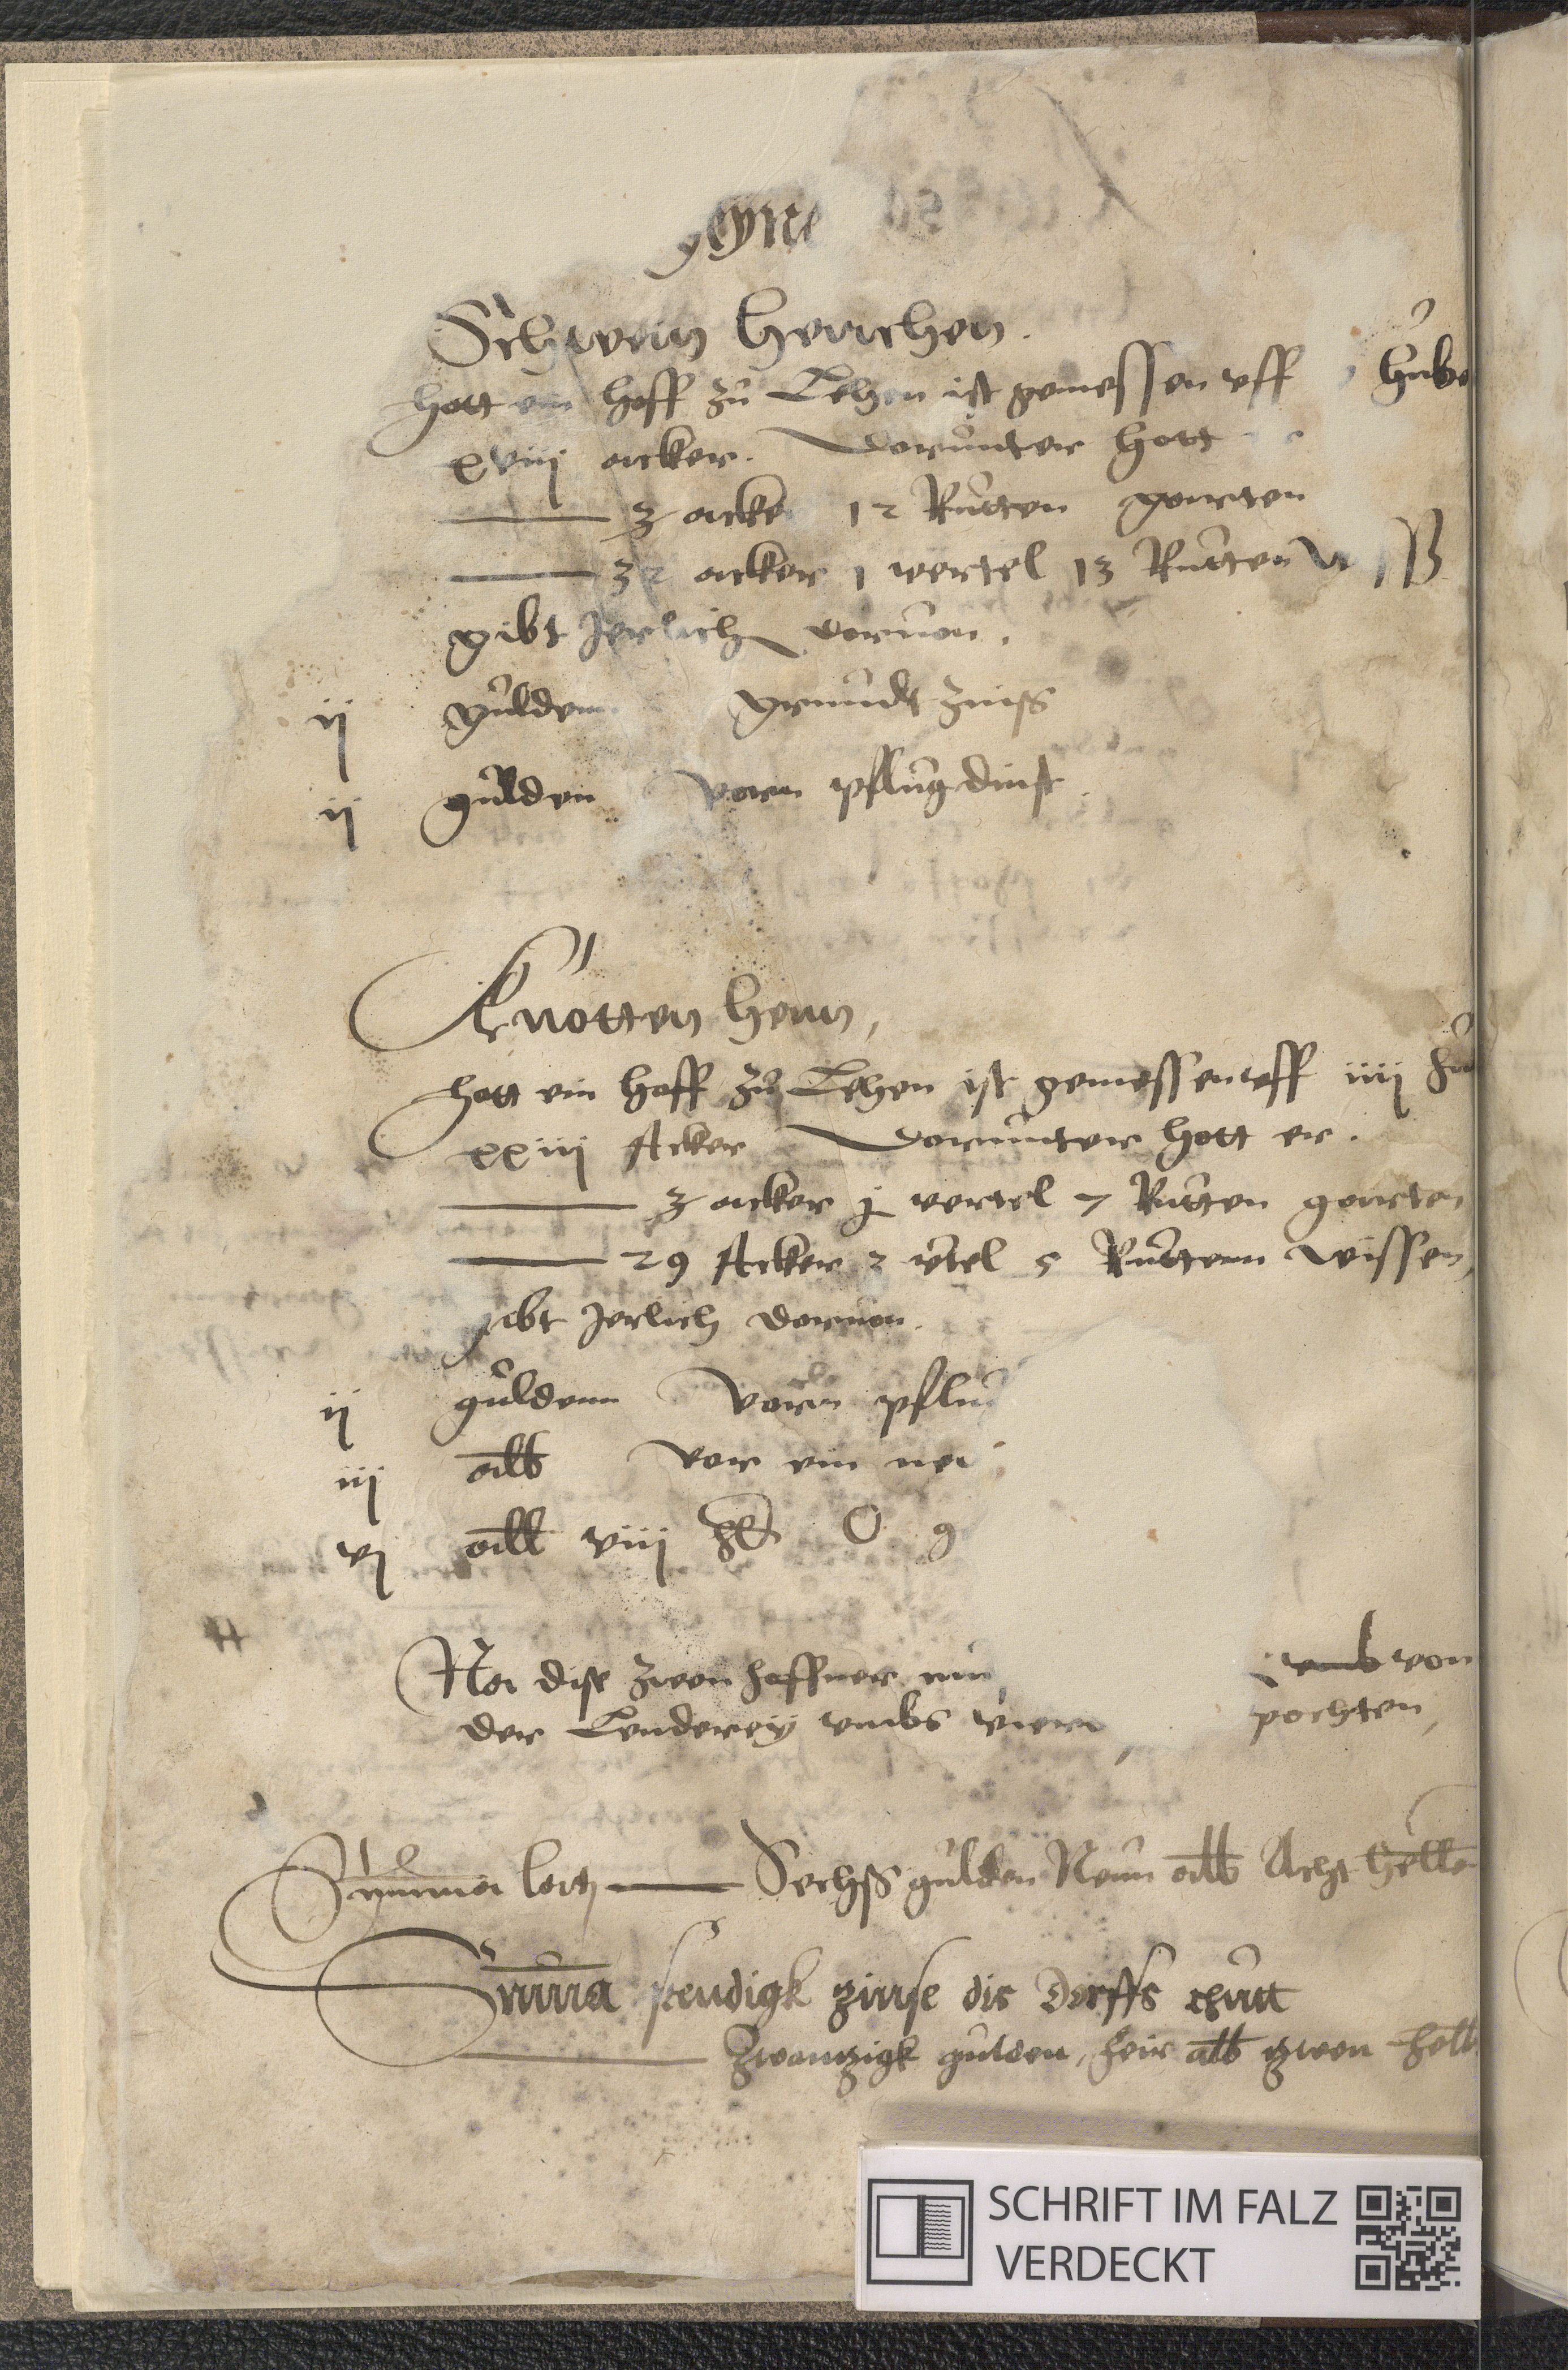 Schwein Henchen.
hatt ein hoff zu Lehen ist gemessen vff hube
xviij acker. Dorunter hatt
3 acke 12 Rutten garten
32 acker 1 vertel 13 Rutten
gibt Jerlich dauon.
ij gulden grundt zinss
ij gulden vorm pflugdinst
Knotten Henn,
hatt ein hoff zu Lehen ist gemessen vff iiij hu
xxiij Acker Dorunter hatt er.
3 acker j vertel 7 Rutten garten
29 Acker 2 vtel 5 Ruttenn wissen,
gibt Jerlich dauon.
ij guldenn vorm pflu
iij alb vor ein
vj alb viij
Na dise zwen hoffner vmb von
der Lenderey vmbs viere pachten,
Summa latz Sechss gulden Neun alb Acht helle
Summa stendigk zinse dis Dorffs thutt
Zwanzigk gulden, alb zwen hell
SCHRIFT IM FALZ
VERDECKT